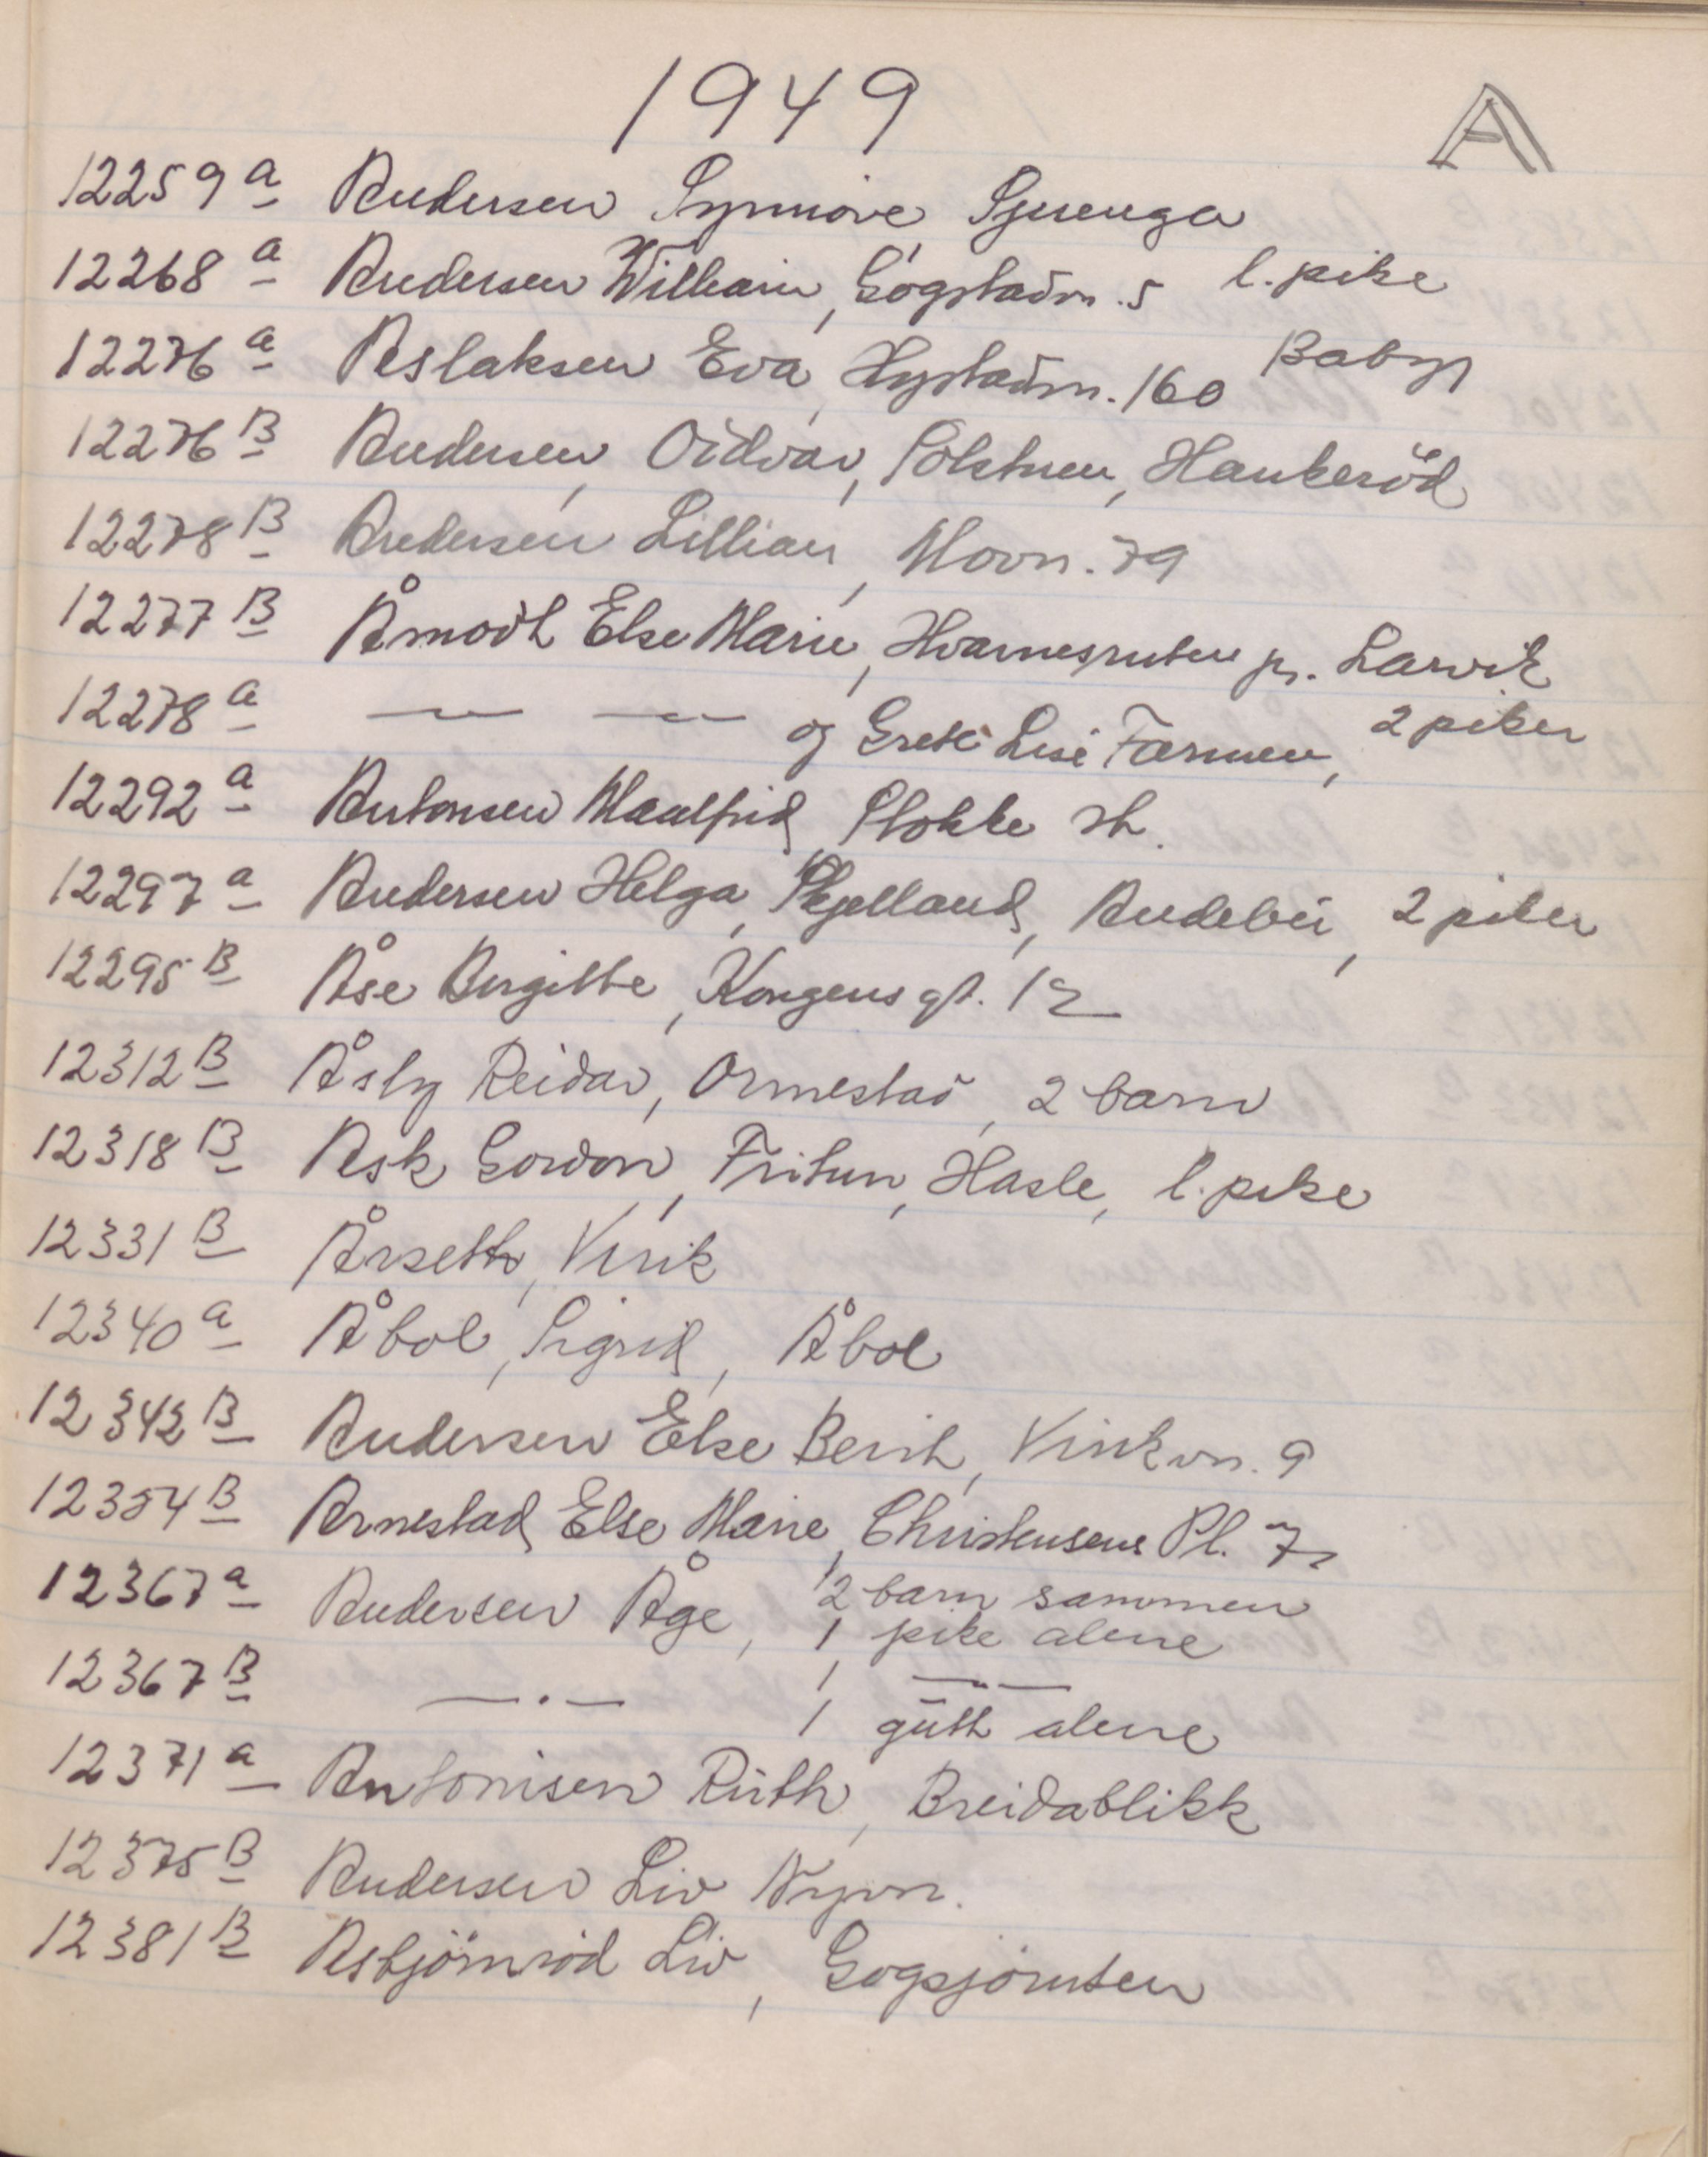 1949
A
12259 a Andersen Synnöve Gjerenga
12268 a Andersen William, Gogstadvn. 5 l. pike
12276 a Aslaksen Eva, Hystadvn. 160 Baby
12276 B Andersen, Oddvar, Solstuen, Haukeröd
12278 B Andersen Lillian, Movn. 79
12277 B Åmodt Else Marie, Hvarnesruten pr. Larvik
12278 a —"— —"— og Grete Lise Farmen, 2 piker
12292 a Antonsen Maalfrid Stokke st.
12297 a Andersen Helga, Skjelland, Andebu, 2 piker
12295 B Åse Birgitte, Kongens gt. 12
12312 B Åsly Reidar, Ormestad, 2 barn
12318 B Ask Gordon, Fritun, Hasle, l. pike
12331 B Årseth, Virik
12340 a Åbol, Sigrid, Åbol
12342 B Andersen Else Berit, Virikvn. 9
12354 B Arnestad Else Marie, Christensens Pl. 7
12367 a Andersen Åge, 2 barn sammen
1 pike alene
12367 B —"— 1 —"—
1 gutt alene
12371 a Antonisen Ruth, Breidablikk
12375 B Andersen Liv Nyvn.
12381 B Asbjörnröd Liv, Gogsjöruten